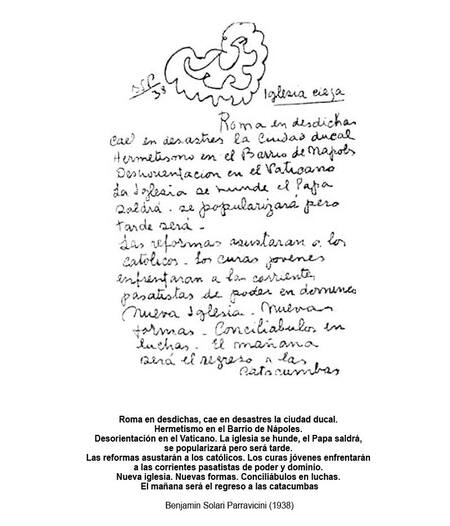 BSP
38
Iglesia ciega
Roma en desdichas
cae en desastres la ciudad ducal
Hermetismo en el Barrio de Napoles
Desorientacion en el Vaticano
La Iglesia se hunde el Papa
saldrá - se popularizará pero
tarde será -
Las reformas asustaran a los
catolicos - Los curas jovenes
enfrentaran a las corrientes
pasatistas de poder en domenes
Nueva Iglesia - Nuevas
formas - Conciliabulos en
luchas - El mañana
será el regreso a las
catacumbas
Roma en desdichas, cae en desastres la ciudad ducal.
Hermetismo en el Barrio de Nápoles.
Desorientación en el Vaticano. La iglesia se hunde, el Papa saldrá,
se popularizará pero será tarde.
Las reformas asustarán a los católicos. Los curas jóvenes enfrentarán
a las corrientes pasatistas de poder y dominio.
Nueva iglesia. Nuevas formas. Conciliábulos en luchas.
El mañana será el regreso a las catacumbas
Benjamin Solari Parravicini (1938)